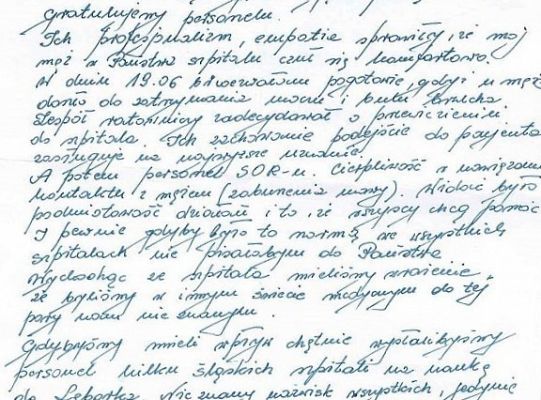 gratulujemy personelu.
Ich profesjonalizm, empatia sprawiły, że mój
mąż w Państwa szpitalu czuł się komfortowo.
W dniu 19.06 wzywałam pogotowie, gdyż u męża
doszło do zatrzymania moczu i bólu brzucha.
Zespół ratowniczy zadecydował o przewiezieniu
do szpitala. Ich zachowanie podejście do pacjenta
zasługuje na najwyższe uznanie.
A potem personel SOR-u. Cierpliwość w nawiązaniu
kontaktu z mężem (zaburzenia mowy). Widać było
podmiotowość działań i to, że wszyscy chcą pomóc
I pewnie gdyby było to normą we wszystkich
szpitalach nie pisałabym do Państwa
Wychodząc ze szpitala mieliśmy wrażenie,
że byliśmy w innym świecie medycznym do tej
pory nam nie znanym.
Gdybyśmy mieli wpływ chętnie wysłalibyśmy
personel kilku śląskich szpitali na naukę
do Lęborka. Nie znamy nazwisk wszystkich, jedynie